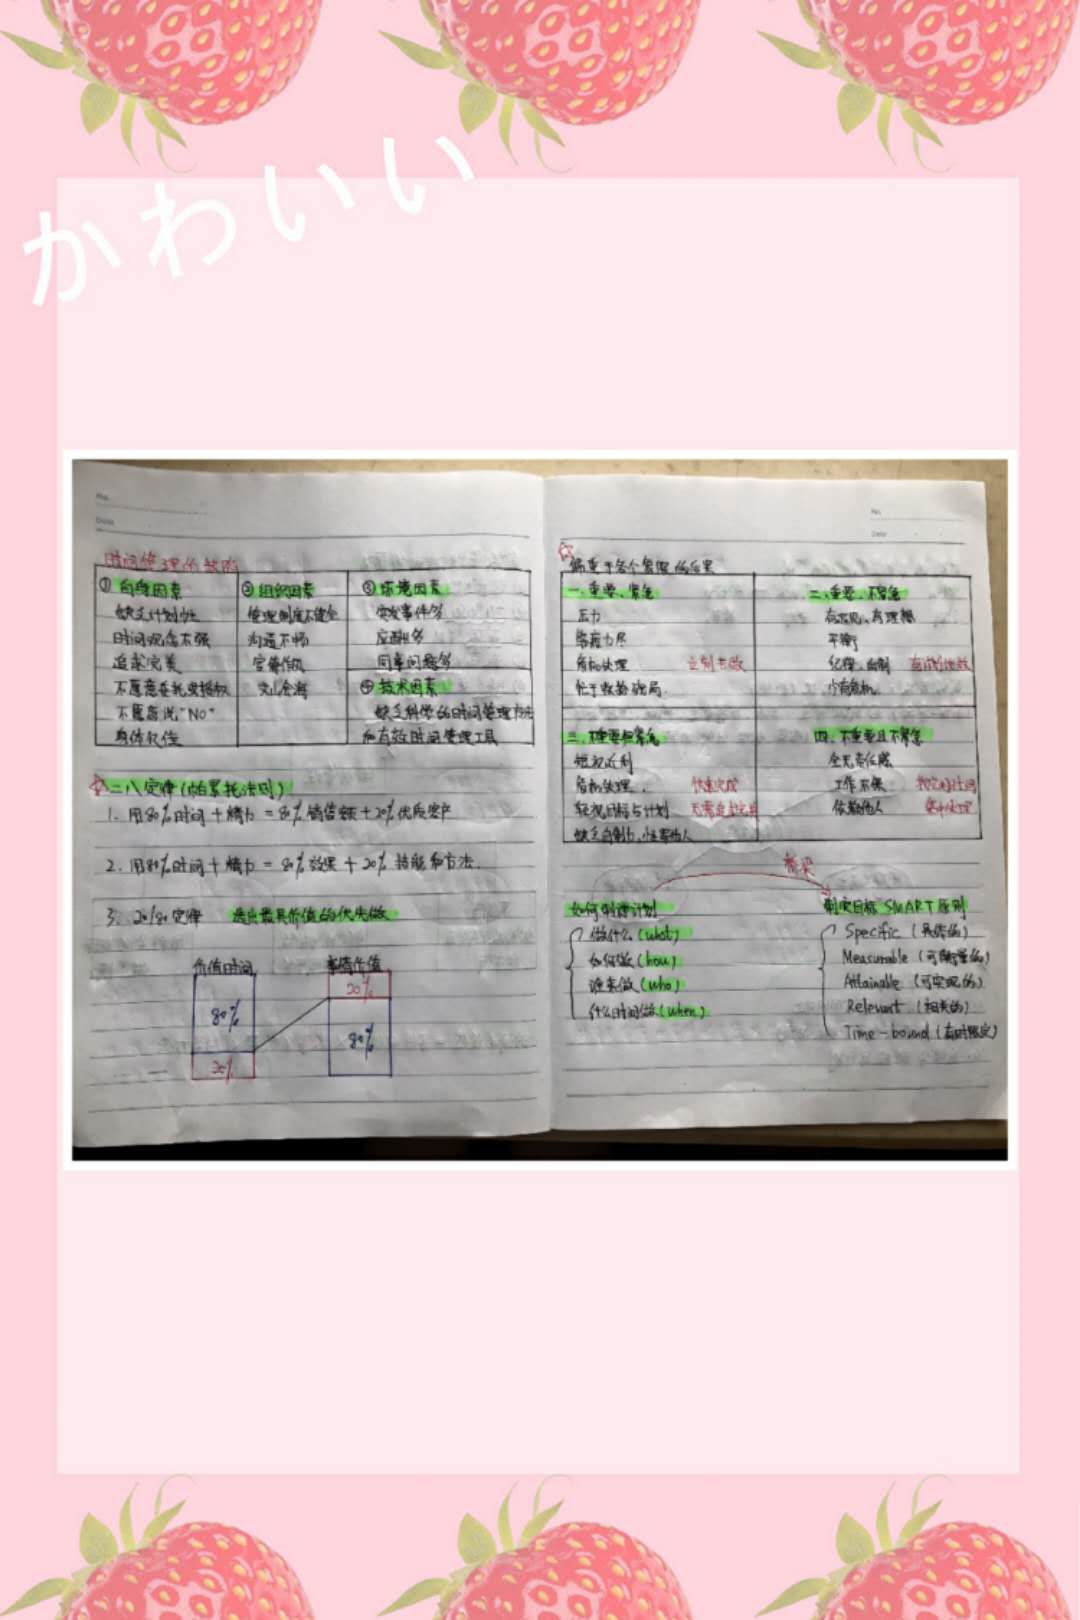 かわいい
No.
Date
时间管理的
① 自身因素
缺乏计划性
时间观念不强
追求完美
不愿意委托或授权
不愿意说"NO"
身体欠佳
② 组织因素
管理制度不健全
沟通不畅
官僚作风
文山会海
③ 环境因素
突发事件多
应酬多
同事问题多
④ 技术因素
缺乏科学的时间管理方法
和有效时间管理工具
☆二八定律(帕累托法则)
1. 用80%时间+精力=80%销售额+20%优质客户
2. 用80%时间+精力=80%效果+20%技能和方法.
3. 20/80定律 选出最具价值的优先做
价值时间
80%
20%
事情价值
20%
80%
No.
Date
☆偏重于各个象限的后果
一.重要、紧急
压力
筋疲力尽
危机处理 立刻去做
忙于收拾残局.
二.重要、不紧急
有远见、有理想
平衡
纪律、自制 有计划地做
少有危机
三.不重要但紧急
短视近利
危机处理. 快速完成
轻视目标与计划
缺乏自制力,怪罪他人
四.不重要且不紧急
全无责任感
工作不保
依赖他人 集中处理
如何制定计划
做什么(what)
如何做(how)
谁来做(who)
什么时间做(when)
制定目标SMART原则
Specific(具体的)
Measurable(可衡量的)
Attainable(可实现的)
Relevant(相关的)
Time-bound(有时限定)